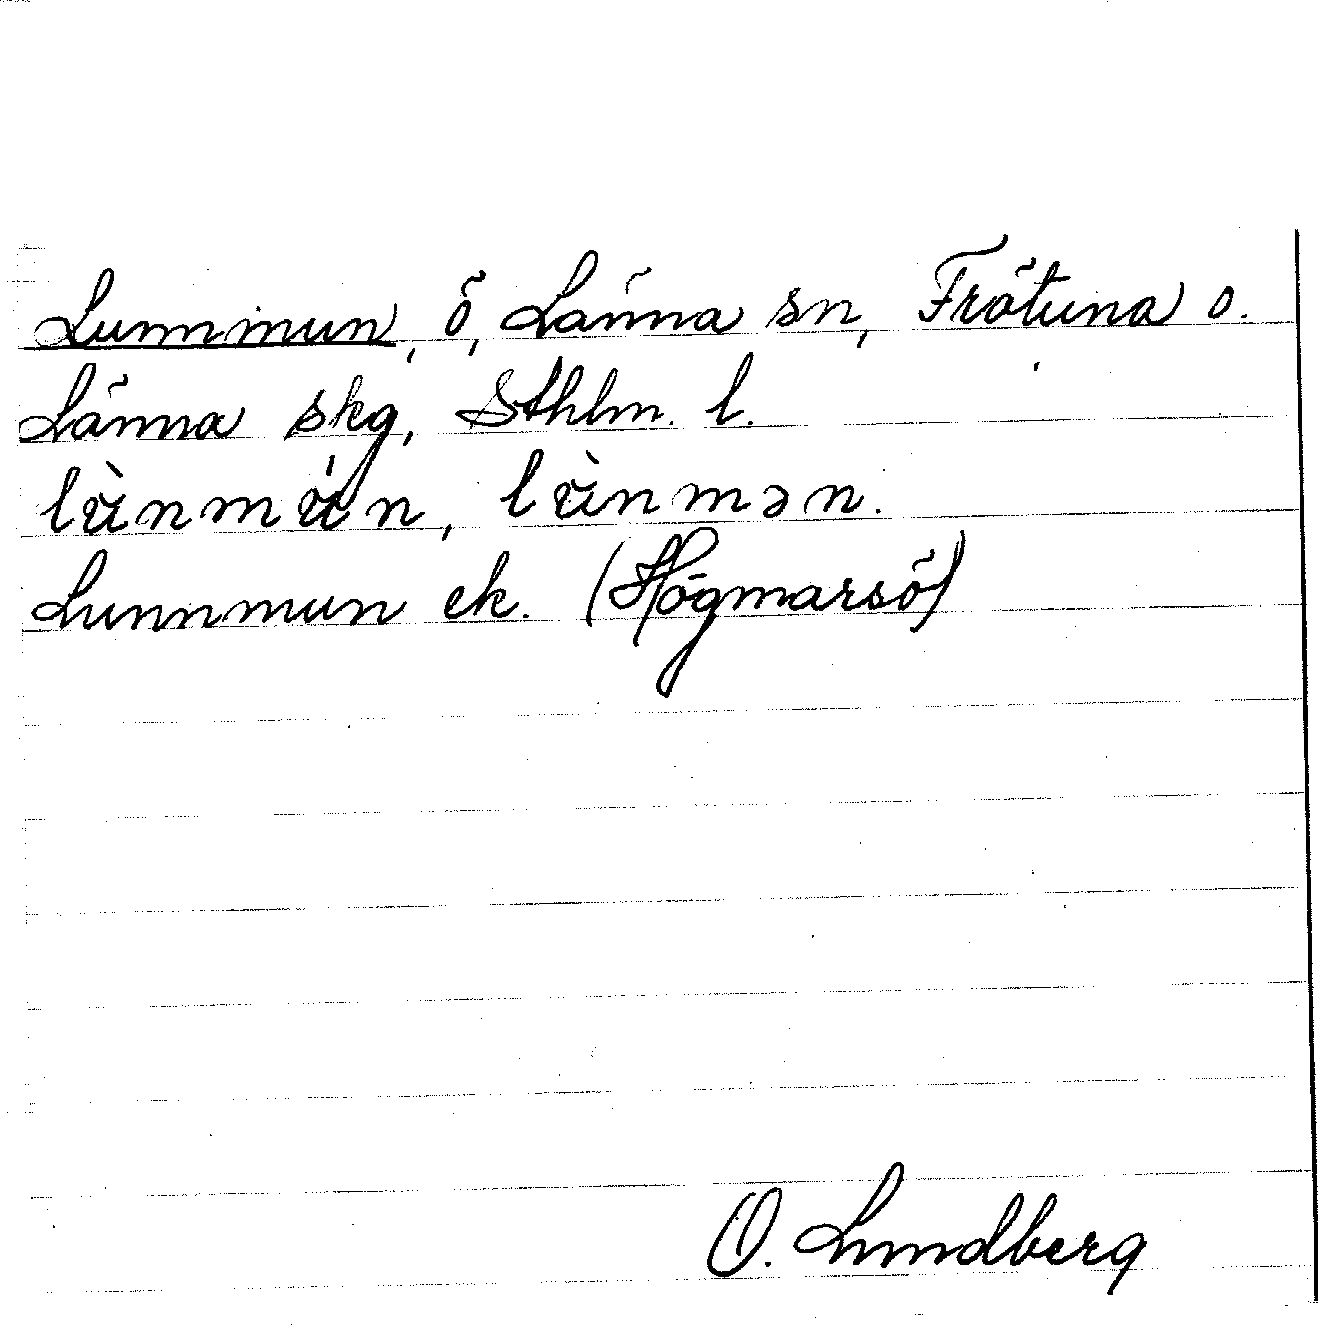 Lunnmun, ö, Länna sn, Frötuna o.
Länna skg, Sthlm. l.
lùnmún, lùnmən.
Lunnmun ek. (Högmarsö)
O. Lundberg